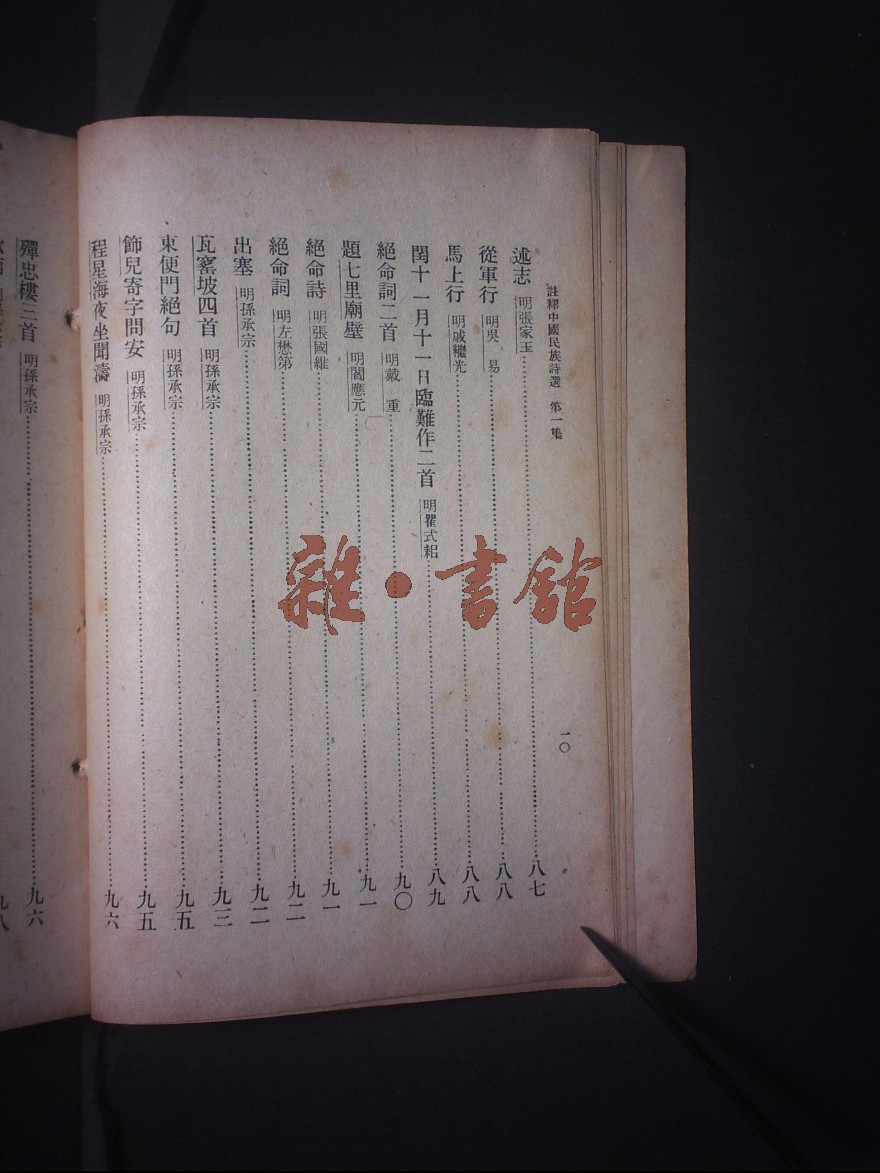 註釋中國民族詩選 第一集
一〇
述志 明張家玉 八七
從軍行 明吳易 八八
馬上行 明戚繼光 八八
閏十一月十一日臨難作二首 明瞿式耜 八九
絕命詞二首 明戴重 九〇
題七里廟壁 明閻應元 九一
絕命詩 明張國維 九一
絕命詞 明左懋第 九二
出塞 明孫承宗 九二
瓦窰坡四首 明孫承宗 九三
東便門絕句 明孫承宗 九五
飾兒寄字問安 明孫承宗 九五
程星海夜坐聞濤 明孫承宗 九六
殫忠樓三首 明孫承宗 九六
九八
雜·書館